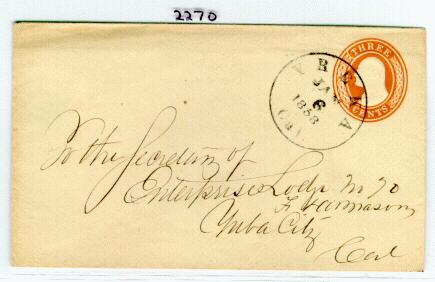 2270
THREE
CENTS
YREKA
JAN
6
1858
CAL
To the Secretary of
Enterprise Lodge No 70
F & A Masons
Yuba City
Cal